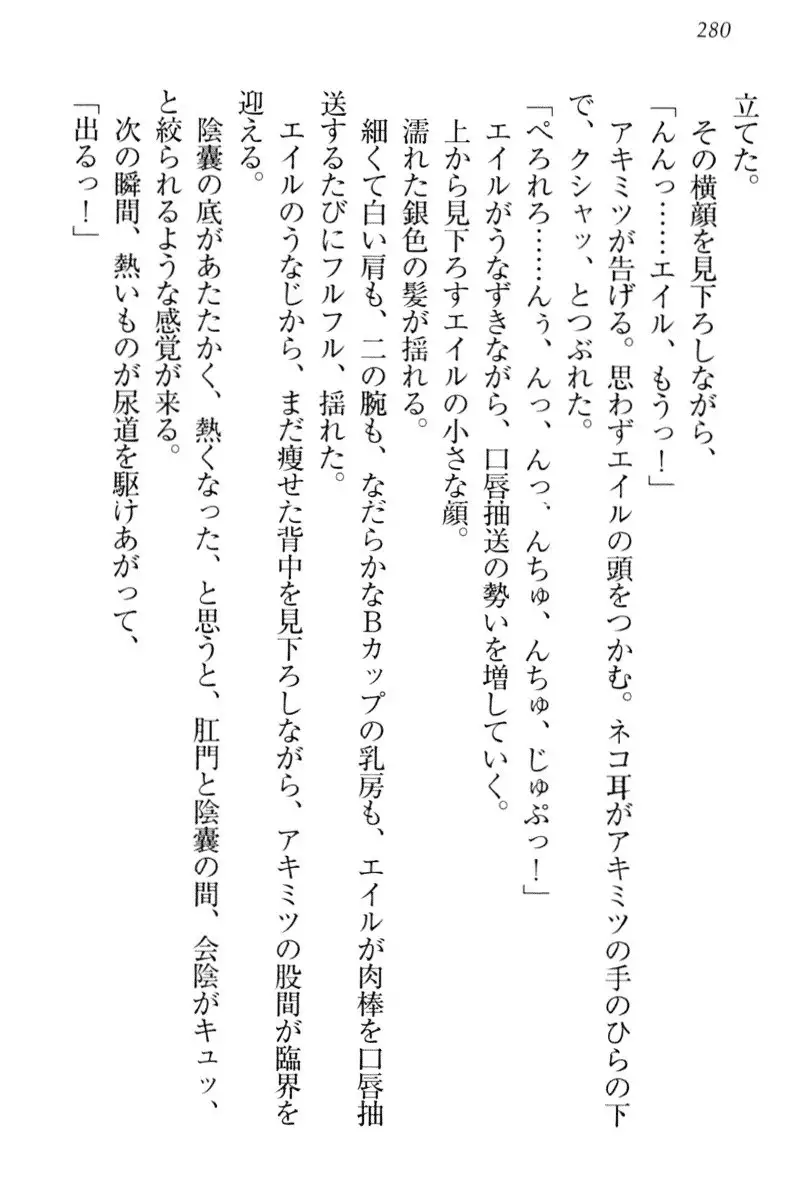 280
立てた。
その横顔を見下ろしながら、
「んんっ……エイル、もうっ！」
アキミツが告げる。思わずエイルの頭をつかむ。ネコ耳がアキミツの手のひらの下
で、クシャッ、とつぶれた。
「ぺろれろ……んぅ、んっ、んっ、んちゅ、んちゅ、じゅぷっ！」
エイルがうなずきながら、口唇抽送の勢いを増していく。
上から見下ろすエイルの小さな顔。
濡れた銀色の髪が揺れる。
細くて白い肩も、二の腕も、なだらかなBカップの乳房も、エイルが肉棒を口唇抽
送するたびにフルフル、揺れた。
エイルのうなじから、まだ痩せた背中を見下ろしながら、アキミツの股間が臨界を
迎える。
陰嚢の底があたたかく、熱くなった、と思うと、肛門と陰嚢の間、会陰がキュッ、
と絞られるような感覚が来る。
次の瞬間、熱いものが尿道を駆けあがって、
「出るっ！」